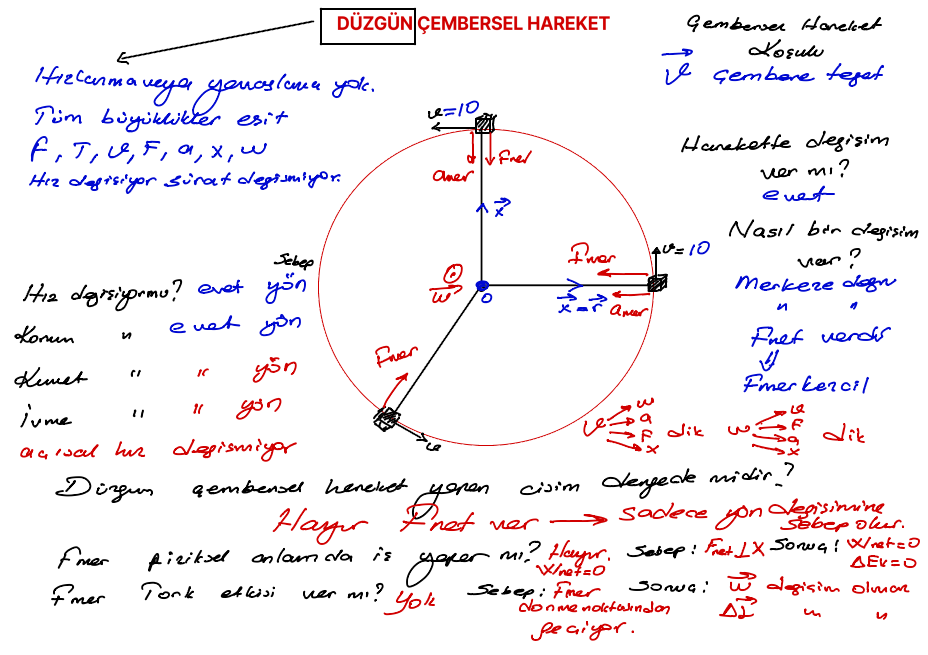 DÜZGÜN ÇEMBERSEL HAREKET
Hızlanma veya yavaşlama yok.
Tüm büyüklükler eşit
f, T, v, F, a, x, w
Hız değişiyor sürat değişmiyor.
Çembersel Hareket
Koşulu
v çembere teğet
Harekette değişim
var mı?
evet
Nasıl bir değişim
var?
Merkeze doğru
" "
Fnet vardır
Fmerkezcil
v=10
amer
Fmer
x
v=10
Fmer
amer
x=r
w
O
Fmer
v
Sebep
Hız değişiyormu? evet yön
Konum " evet yön
Kuvvet " " yön
İvme " " yön
açısal hız değişmiyor
v w a F x dik
w v F a x dik
Düzgün çembersel hareket yapan cisim dengede midir?
Hayır Fnet var → sadece yön değişimine
sebep olur.
Fmer fiziksel anlamda iş yapar mı? Hayır. Sebep: Fnet⊥X Sonuç: Wnet=0
Wnet=0 ΔEk=0
Fmer Tork etkisi var mı? Yok Sebep: Fmer Sonuç: w değişim olmaz
dönme noktasından ΔL " "
geçiyor.